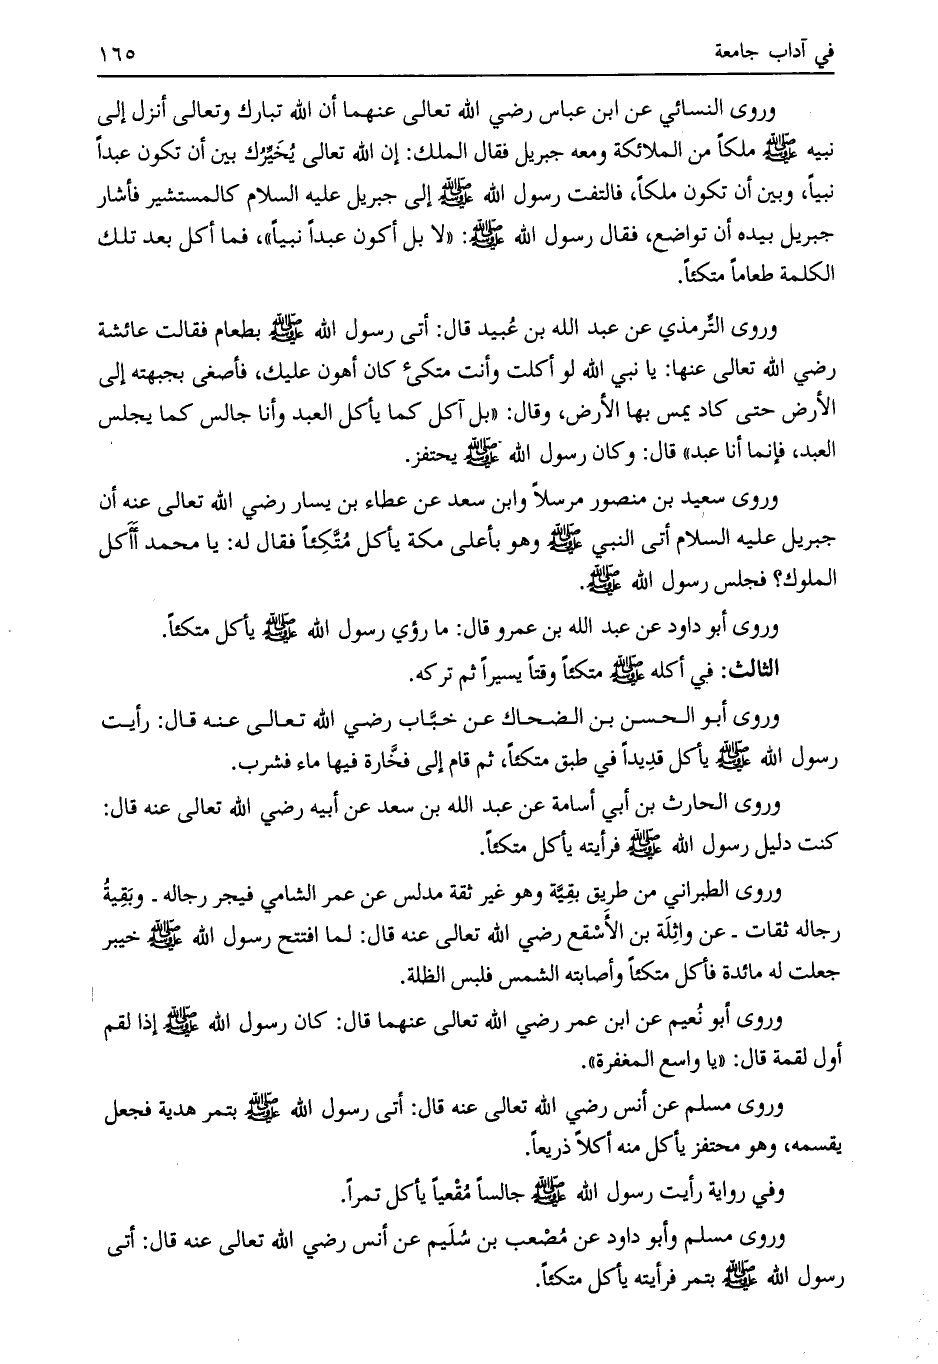 في آداب جامعة ١٦٥
وروى النسائي عن ابن عباس رضي الله تعالى عنهما أن الله تبارك وتعالى أنزل إلى
نبيه ﷺ ملكاً من الملائكة ومعه جبريل فقال الملك: إن الله تعالى يُخَيِّرُك بين أن تكون عبداً
نبياً، وبين أن تكون ملكاً، فالتفت رسول الله ﷺ إلى جبريل عليه السلام كالمستشير فأشار
جبريل بيده أن تواضع، فقال رسول الله ﷺ: «لا بل أكون عبداً نبياً»، فما أكل بعد تلك
الكلمة طعاماً متكئاً.
وروى التِّرمذي عن عبد الله بن عُبيد قال: أتى رسول الله ﷺ بطعام فقالت عائشة
رضي الله تعالى عنها: يا نبي الله لو أكلت وأنت متكئ كان أهون عليك، فأصغى بجبهته إلى
الأرض حتى كاد يمس بها الأرض، وقال: «بل آكل كما يأكل العبد وأنا جالس كما يجلس
العبد، فإنما أنا عبد» قال: وكان رسول الله ﷺ يحتفز.
وروى سعيد بن منصور مرسلاً وابن سعد عن عطاء بن يسار رضي الله تعالى عنه أن
جبريل عليه السلام أتى النبي ﷺ وهو بأعلى مكة يأكل مُتَّكِئاً فقال له: يا محمد أَأَكل
الملوك؟ فجلس رسول الله ﷺ.
وروى أبو داود عن عبد الله بن عمرو قال: ما رؤي رسول الله ﷺ يأكل متكئاً.
الثالث: في أكله ﷺ متكئاً وقتاً يسيراً ثم تركه.
وروى أبو الحسن بن الضحاك عن خبَّاب رضي الله تعالى عنه قال: رأيت
رسول الله ﷺ يأكل قدِيداً في طبق متكئاً، ثم قام إلى فخَّارة فيها ماء فشرب.
وروى الحارث بن أبي أسامة عن عبد الله بن سعد عن أبيه رضي الله تعالى عنه قال:
كنت دليل رسول الله ﷺ فرأيته يأكل متكئاً.
وروى الطبراني من طريق بقِيَّة وهو غير ثقة مدلس عن عمر الشامي فيجر رجاله ـ وبَقِيةُ
رجاله ثقات ـ عن واثِلَة بن الأَسْقع رضي الله تعالى عنه قال: لما افتتح رسول الله ﷺ خيبر
جعلت له مائدة فأكل متكئاً وأصابته الشمس فلبس الظلة.
وروى أبو نُعيم عن ابن عمر رضي الله تعالى عنهما قال: كان رسول الله ﷺ إذا لقم
أول لقمة قال: «يا واسع المغفرة».
وروى مسلم عن أنس رضي الله تعالى عنه قال: أتى رسول الله ﷺ بتمر هدية فجعل
يقسمه، وهو محتفز يأكل منه أكلاً ذريعاً.
وفي رواية رأيت رسول الله ﷺ جالساً مُقْعياً يأكل تمراً.
وروى مسلم وأبو داود عن مُصْعب بن سُلَيم عن أنس رضي الله تعالى عنه قال: أتى
رسول الله ﷺ بتمر فرأيته يأكل متكئاً.